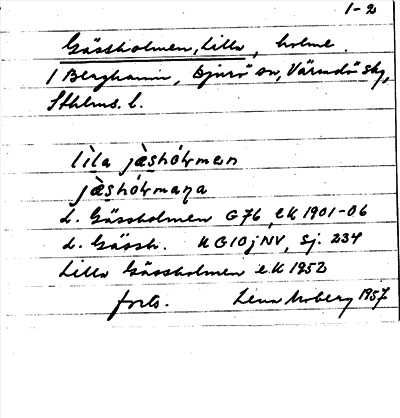 1-2
Gässholmen, Lilla, holme.
/ Berghamn, Djurö sn, Värmdö skg,
Sthlms. l.
lìla jæshóɫmen
jæ̀shóɫmaɳa
d. Gässholmen G76, ek 1901-06
d. Gässh. UG10jNV, sj. 234
Lilla Gässholmen ek 1952
forts. Lena Moberg 1957